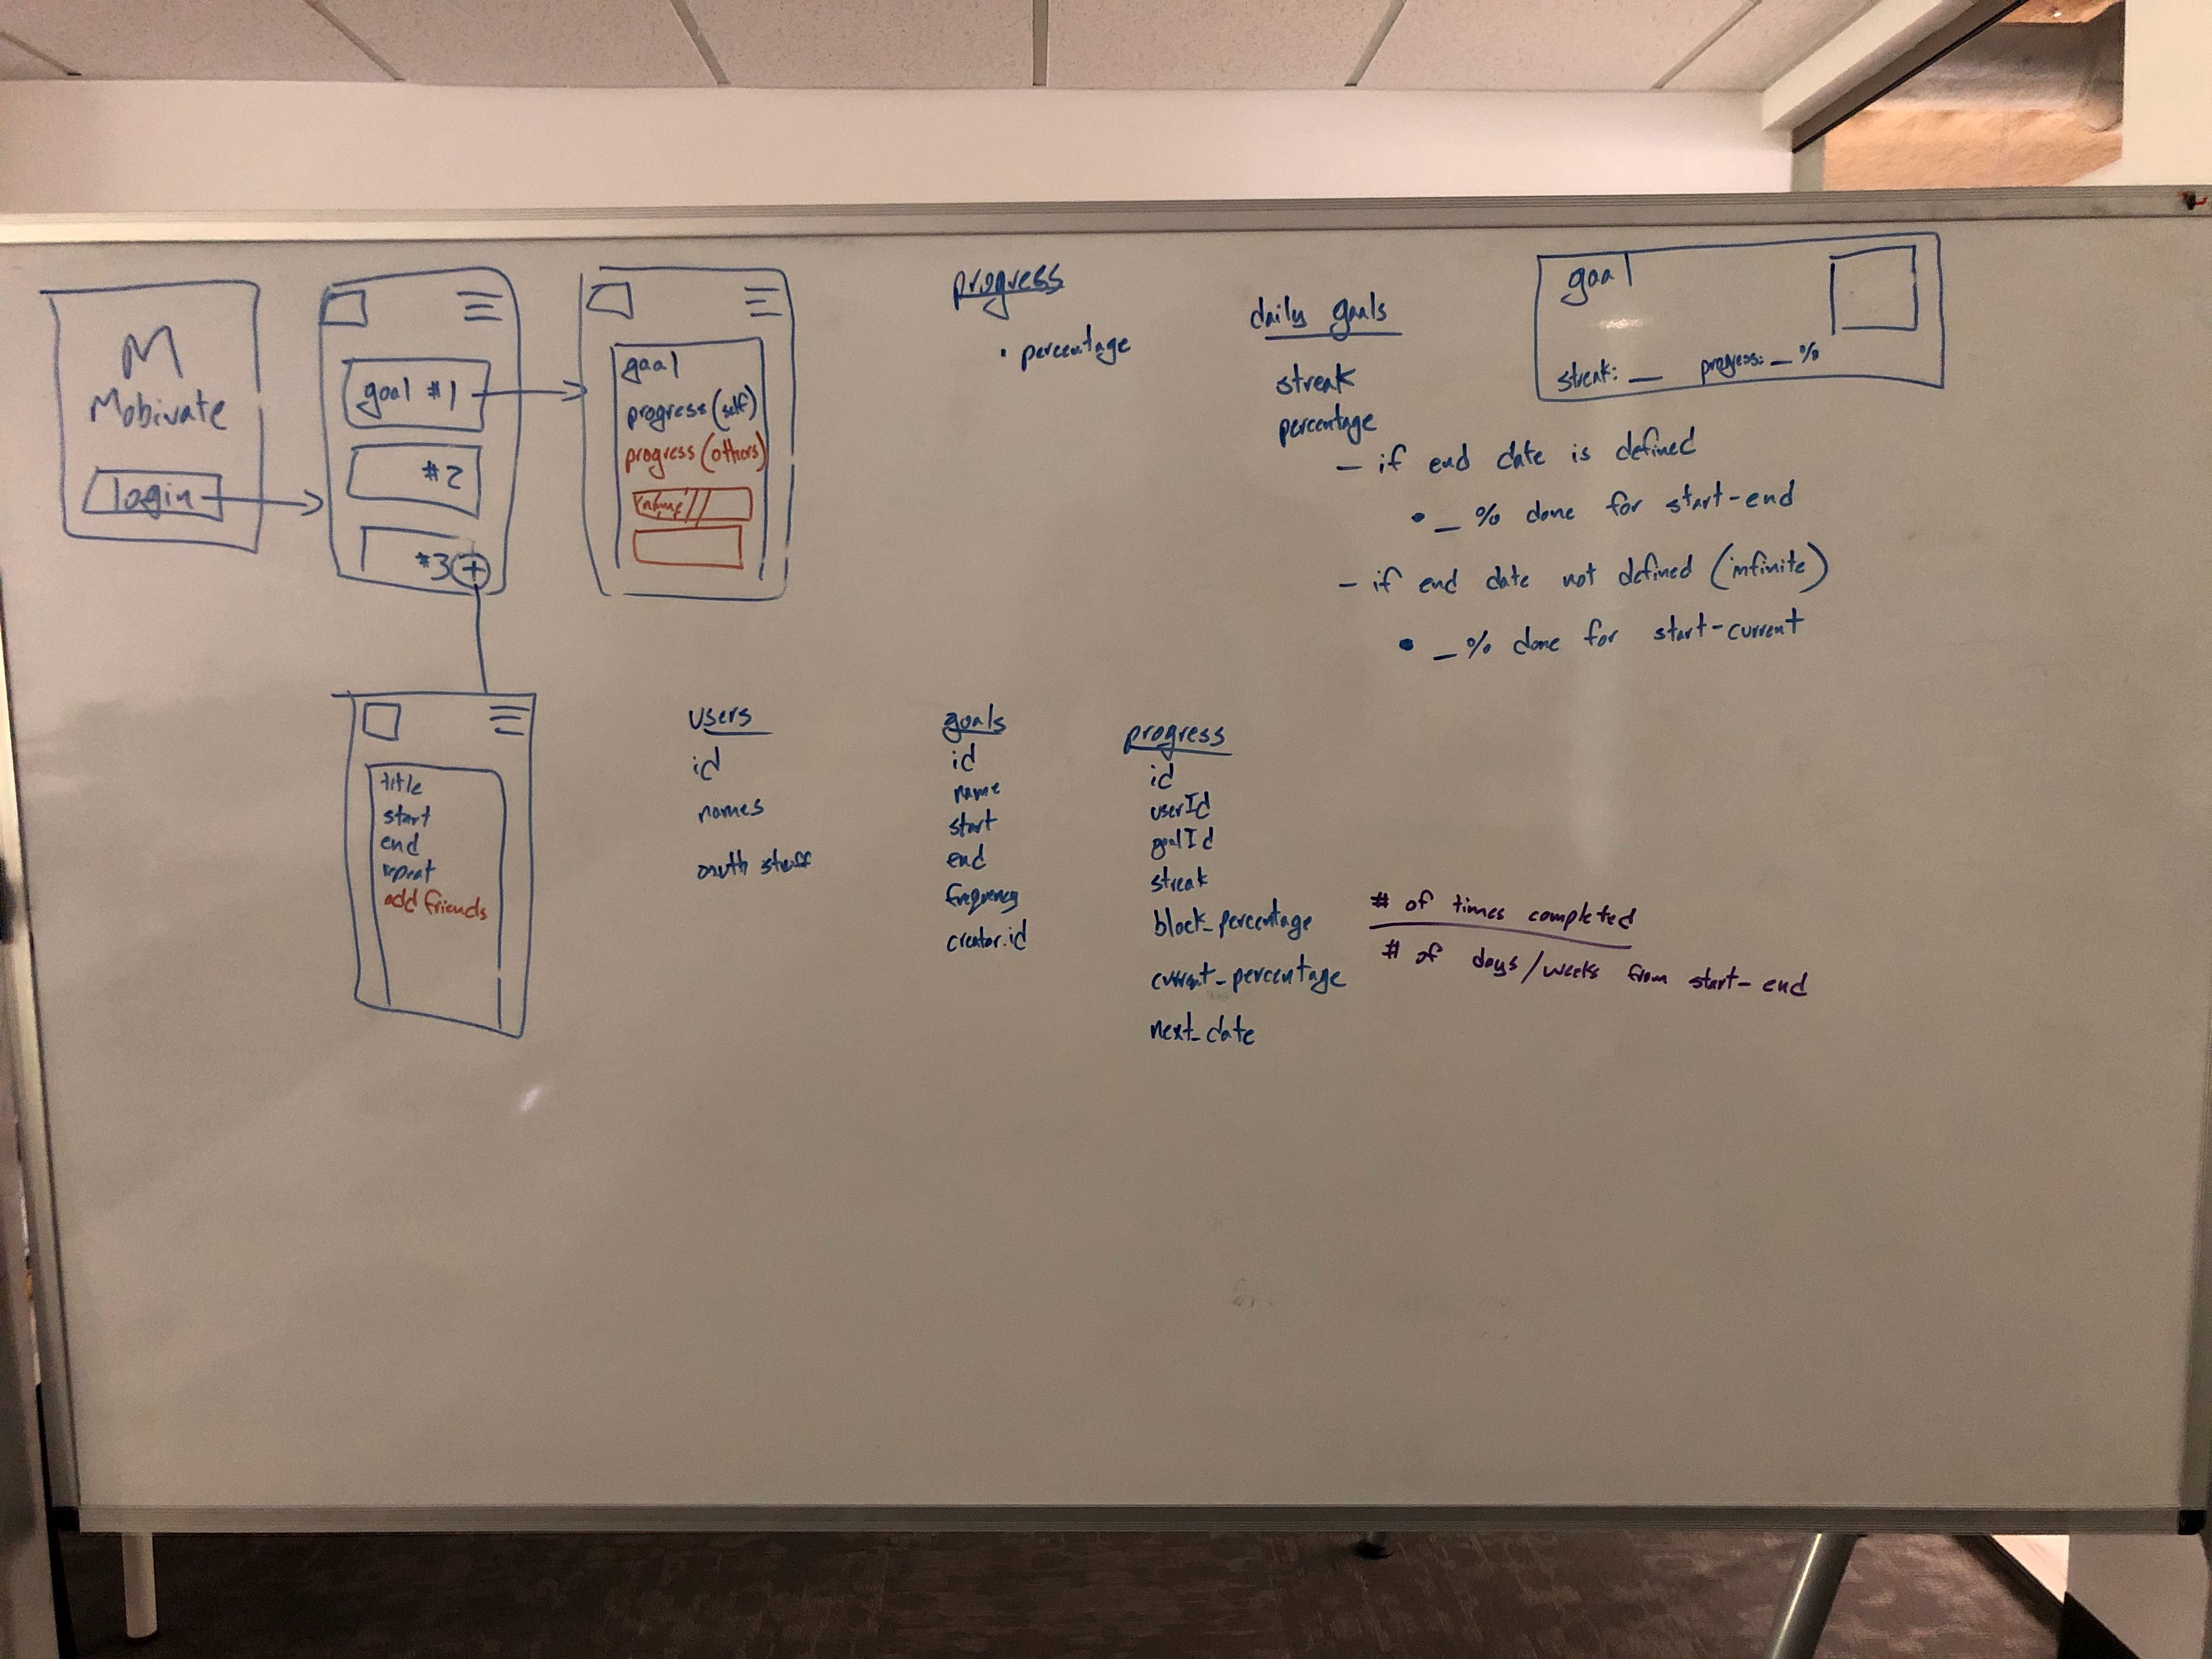 M
Mobivate
login
goal #1
#2
#3 +
goal
progress (self)
progress (others)
name
title
start
end
repeat
add friends
progress
• percentage
daily goals
streak
percentage
– if end date is defined
• _ % done for start-end
– if end date not defined (infinite)
• _ % done for start-current
goal
streak: _ progress: _ %
users
id
names
oauth stuff
goals
id
name
start
end
frequency
creator.id
progress
id
userId
goalId
streak
block_percentage
current_percentage
next_date
# of times completed
# of days/weeks from start-end